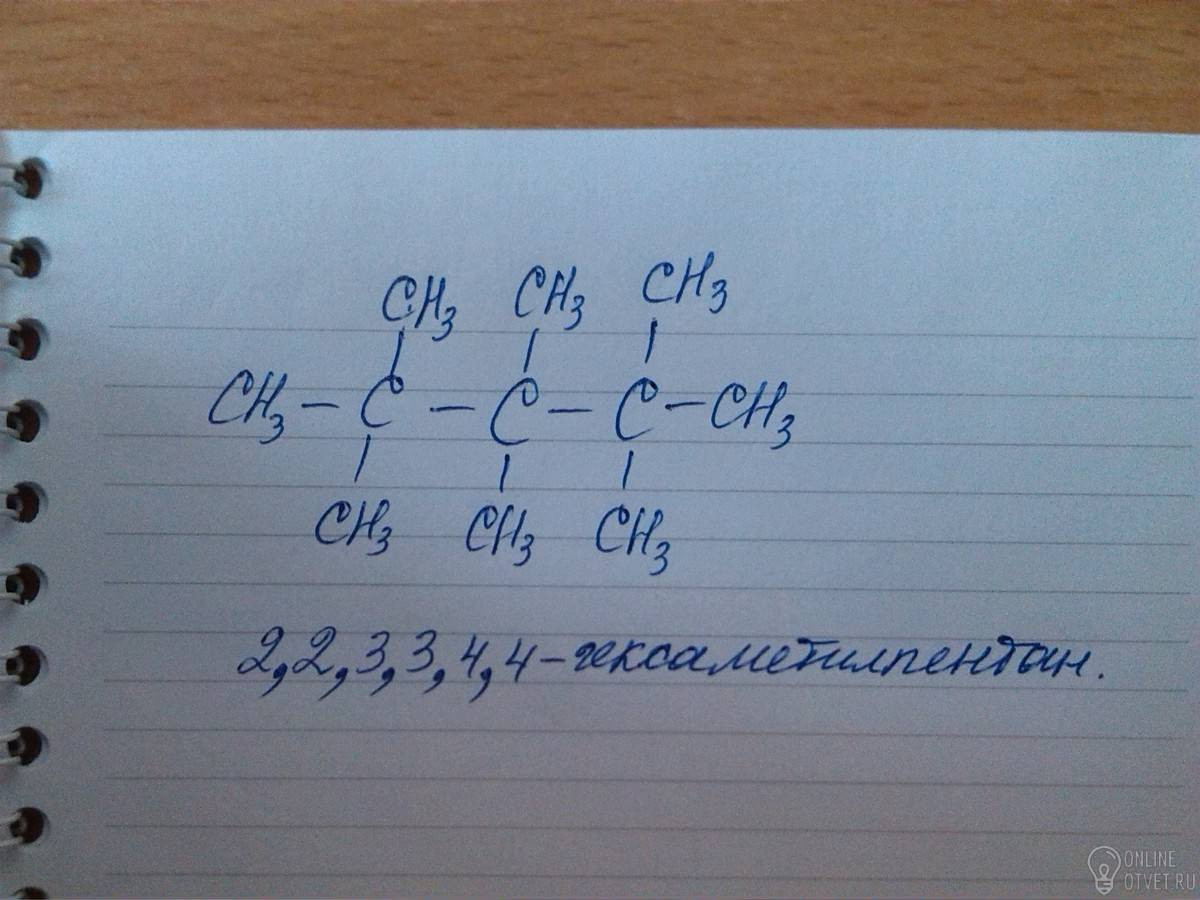 CH₃ CH₃ CH₃
CH₃ – C – C – C – CH₃
CH₃ CH₃ CH₃
2,2,3,3,4,4-гексаметилпентан.
ONLINE
OTVET.RU